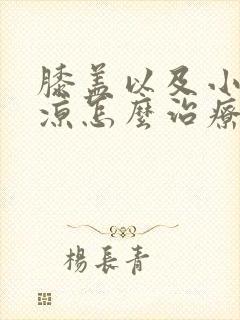 膝盖以及小
凉怎麼治療
楊長青